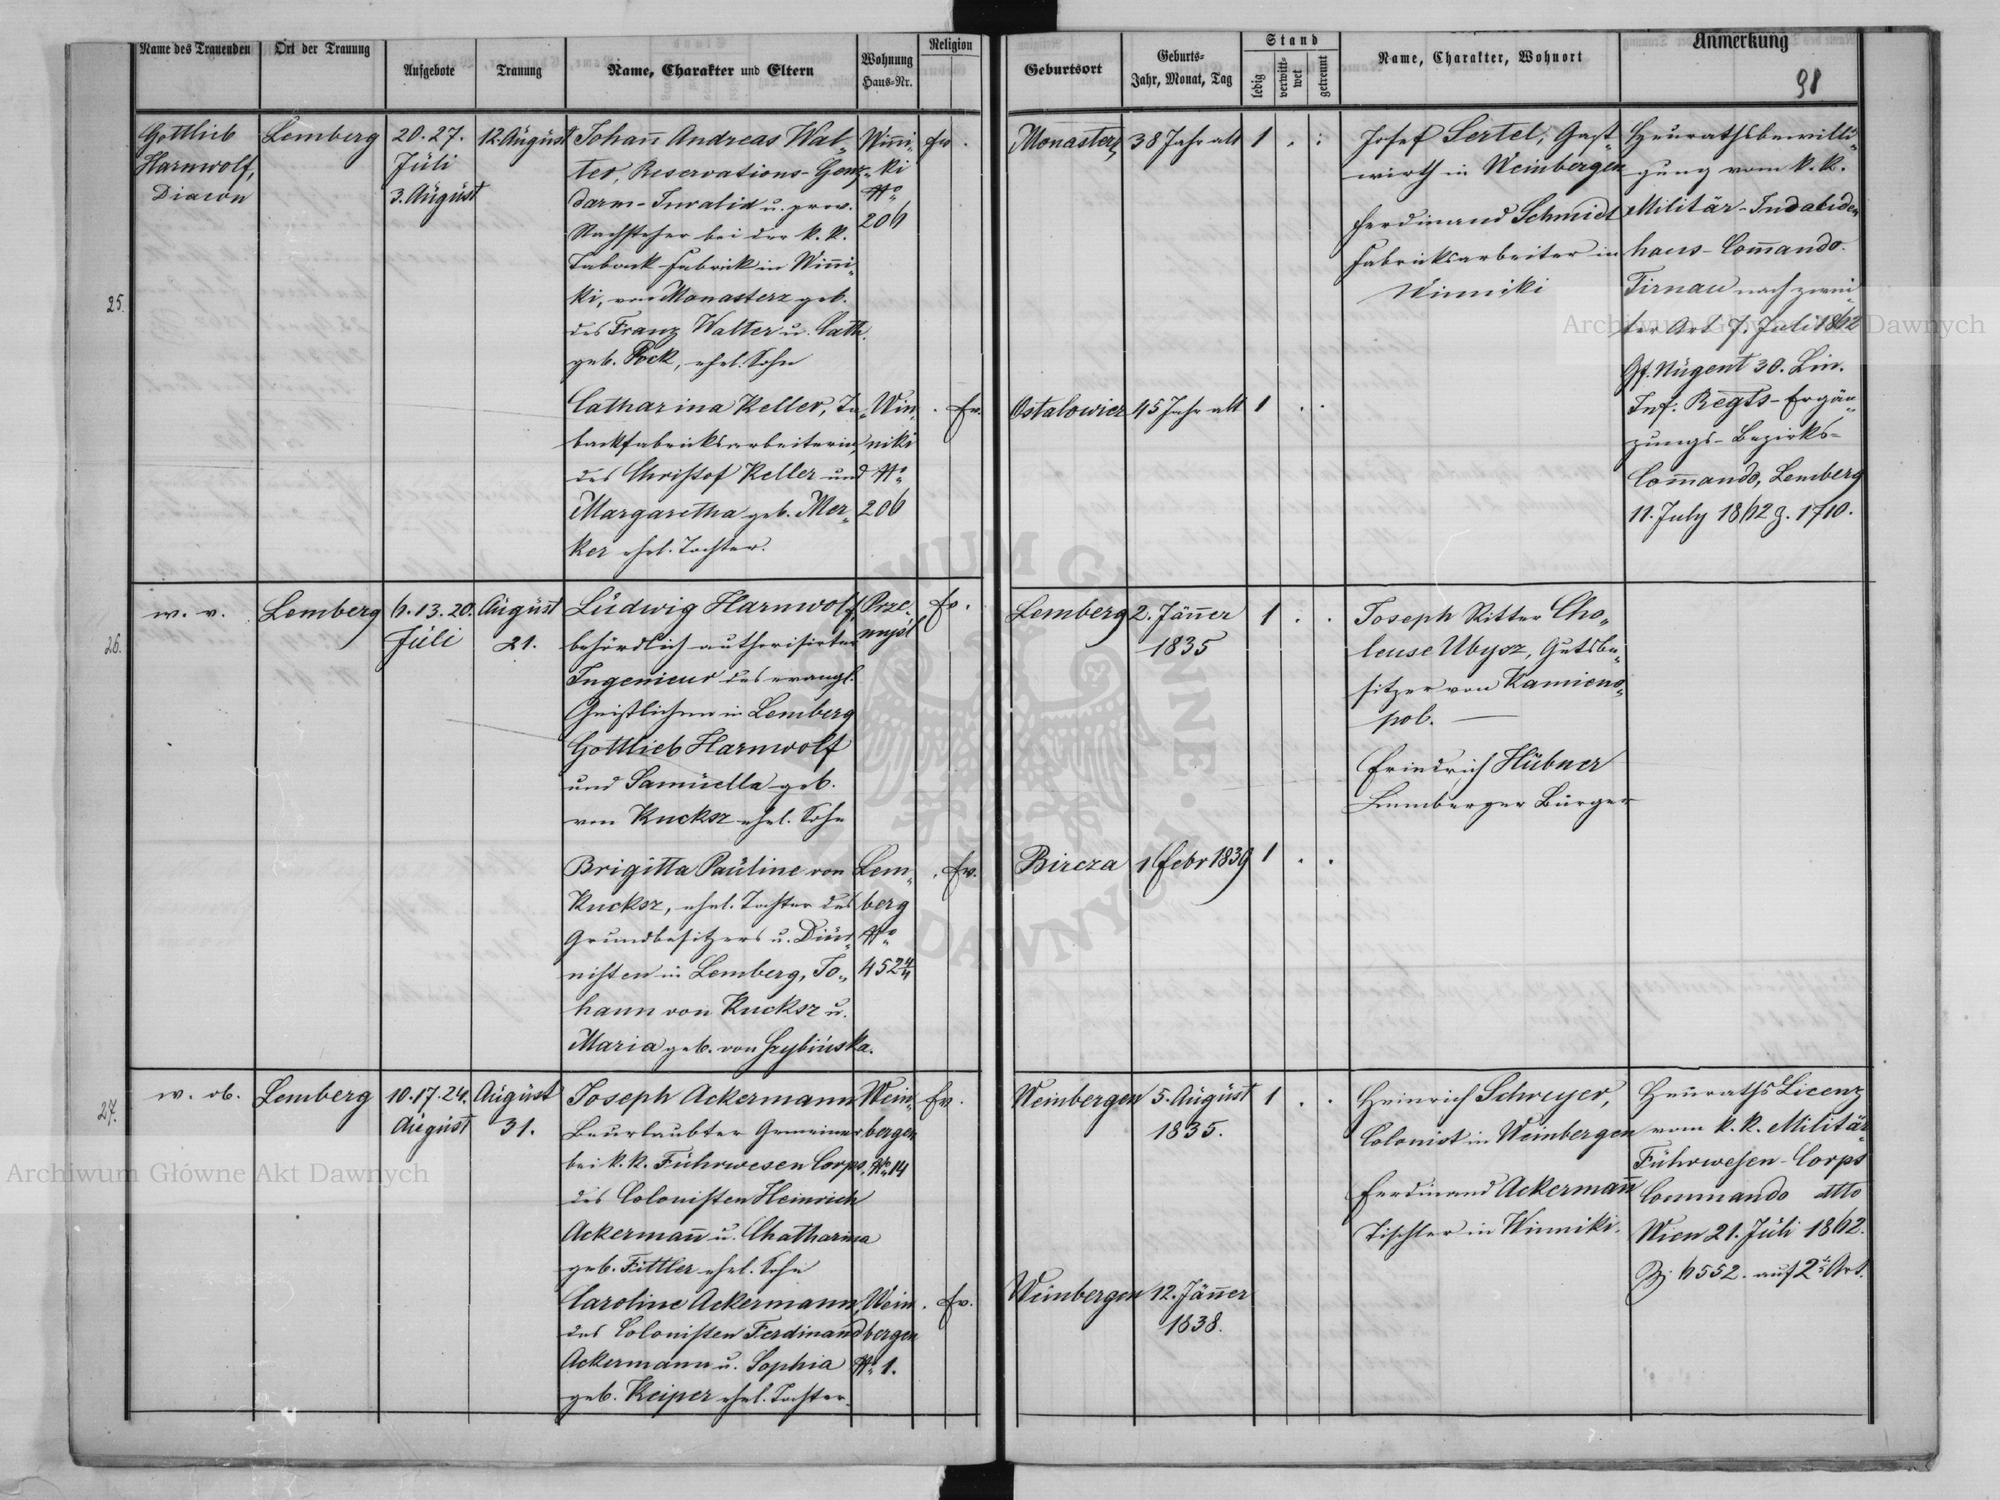 Name des Trauenden
Ort der Trauung
Aufgebote
Trauung
Name, Charakter und Eltern
Wohnung
Haus-Nr.
Religion
Geburtsort
Geburts-
Jahr, Monat, Tag
Stand
ledig
verwitt-
wet
getrennt
Name, Charakter, Wohnort
Anmerkung
98
25.
Gottlieb
Harnwolf,
Diacon
Lemberg
20. 27.
Juli
3. August
12 August
Johann Andreas Wal-
ter, Reservations-Gens-
darm-Invalid u. prov.
Nachseher bei der k. k.
Taback-Fabrick in Winni-
ki, von Monasterz geb.
des Franz Walter u. Cath.
geb. Pock, ehel. Sohn
Winni-
ki
No
206
ev.
Monasterz
38 Jahr alt
1 . .
Josef Sertel, Gast-
wirth in Weinbergen
Ferdinand Schmidt
Fabricksarbeiter in
Winniki
Heurathsbewilli-
gung vom k. k.
Militär-Invaliden
haus-Commando.
Tirnau nach zwei-
ter Art 7. Juli 1862
Gf. Nugent 30. Lin.
Inf: Regts-Ergän-
zungs-Bezirks-
Commando, Lemberg
11. July 1862 z. 1710.
Catharina Keller, Ta-
backfabricksarbeiterin,
des Christof Keller und
Margaretha geb. Mer-
ker ehel. Tochter.
Win-
niki
No
206
. ev.
Ostalowicz
45 Jahr alt
1 . .
26.
w. v.
Lemberg
6. 13. 20.
Juli
August
21.
Ludwig Harnwolf,
behördlich authorisirter
Ingenieur des evangl.
Geistlichen in Lemberg
Gottlieb Harnwolf
und Samuella geb.
von Kucksz ehel. Sohn
Prze-
mysl
ev.
Lemberg
2. Jänner
1835
1 . .
Joseph Ritter Cho-
leuse Ubysz, Gutsbe-
sitzer von Kamieno-
pol.
Friedrich Hübner
Lemberger Bürger
Brigitta Pauline von
Kucksz, ehel. Tochter des
Grundbesitzers u. Diur-
nisten in Lemberg, Jo-
hann von Kucksz u.
Maria geb. von Szybińska.
Lem-
berg
No
452 4/4
. ev.
Bircza
1 Febr 1839
1 . .
27.
w. ob.
Lemberg
10. 17. 24.
August
August
31.
Joseph Ackermann
Beurlaubter Gemeiner
bei k. k. Fuhrwesen Corps,
des Colonisten Heinrich
Ackermann u. Chatharina
geb. Fittler ehel. Sohn
Wein-
bergen
No 14
ev.
Weinbergen
5. August
1835.
1 . .
Heinrich Schreyer,
Colonist in Weinbergen
Ferdinand Ackermann
Tischler in Winniki.
Heuraths Licenz
vom k. k. Militär-
Fuhrwesen-Corps
Commando dtto
Wien 21. Juli 1862.
Z. 6552. auf 2te Art.
Caroline Ackermann,
des Colonisten Ferdinand
Ackermann u. Sophia
geb. Keiper ehel. Tochter.
Wein
bergen
No 1.
. ev.
Weinbergen
12. Jänner
1838.
Archiwum Główne Akt Dawnych
Archiwum Główne Akt Dawnych
ARCHIWUM GŁÓWNE AKT DAWNYCH